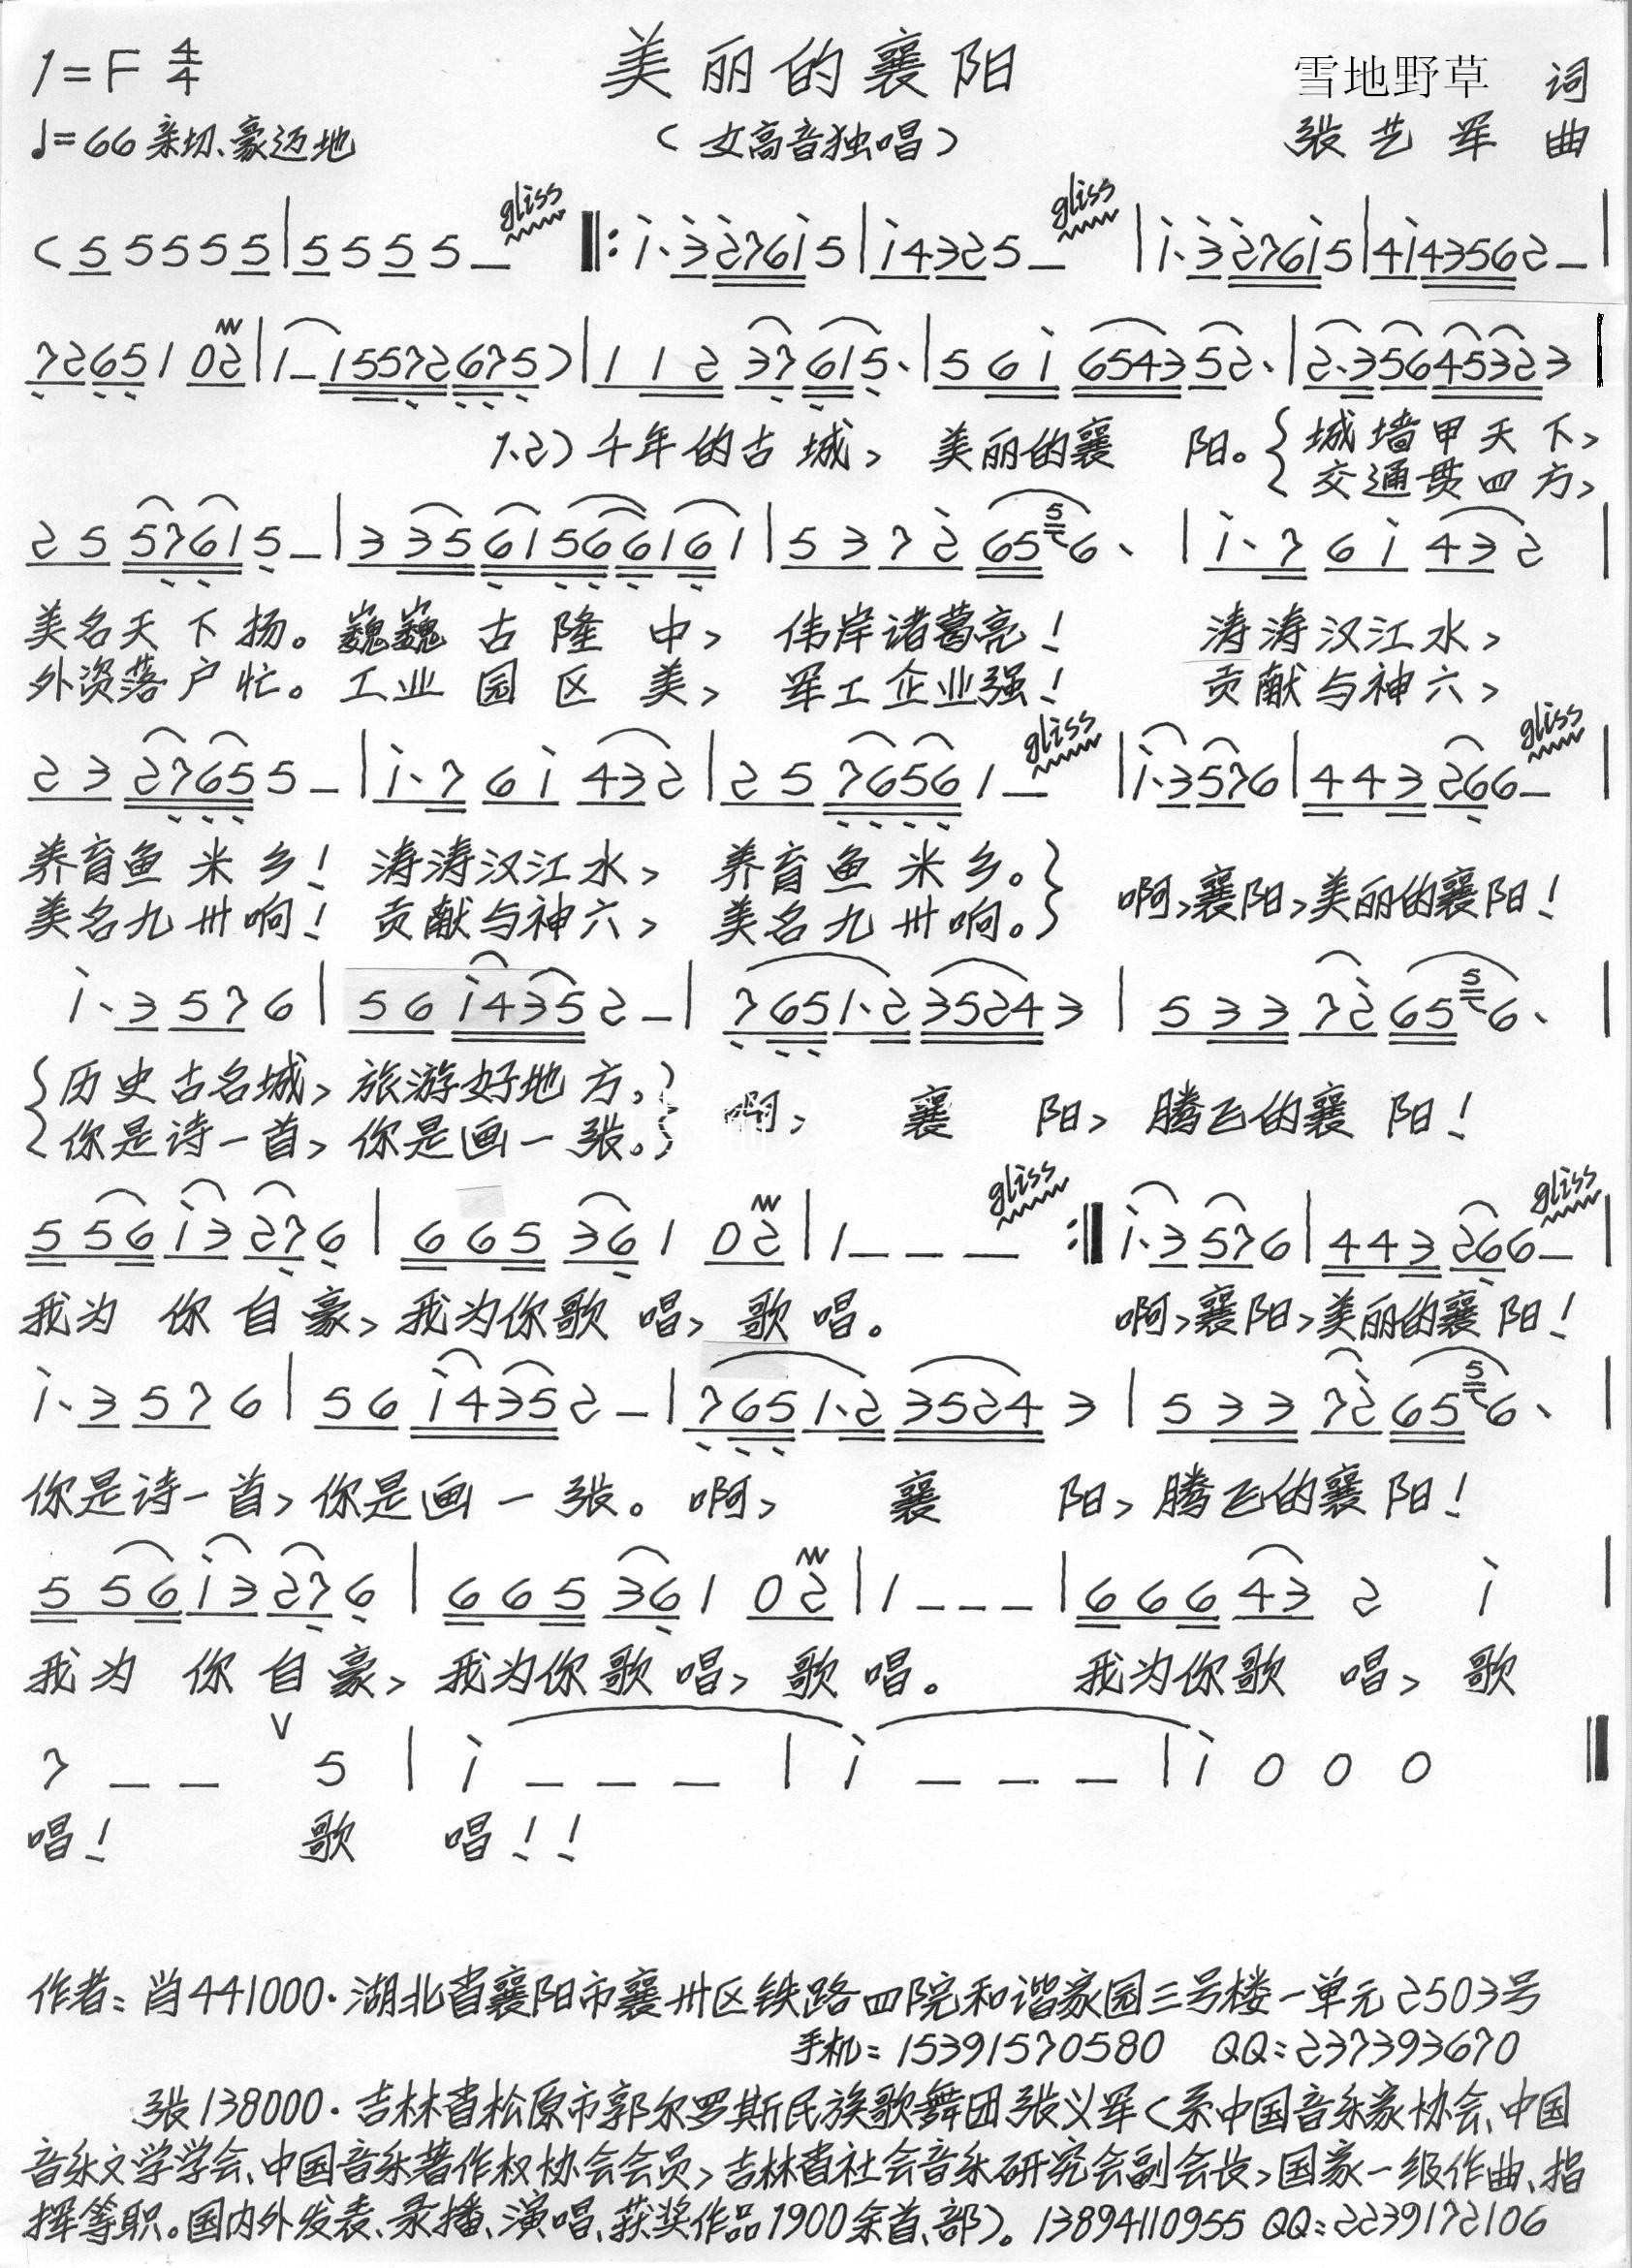 1=F 4/4 美丽的襄阳 雪地野草 词
♩=66 亲切、豪迈地 (女高音独唱) 张艺军 曲
gliss gliss
(5 5 5 5 5|5 5 5 5 _ ‖: i·3 2761 5|i432 5 _ |i·3 2761 5|4i43562 _ |
7265 1 02|1 _ 15572675)|1 1 2 37 615·|5 6 i 6543 52·|2·356 45323|
1、2) 千年的古城, 美丽的襄 阳。{城墙甲天下,
交通贯四方,
2 5 57615 _ |3 35 6156 6161|5 3 7 2 65 5 6· |i·7 6 i 43 2 |
美名天下扬。巍巍古隆中, 伟岸诸葛亮! 涛涛汉江水,
外资落户忙。工业园区美, 军工企业强! 贡献与神六,
gliss gliss
2 3 2765 5 _ |i·7 6 i 43 2|2 5 7656 1 _ |i·3576|443 266 _ |
养育鱼米乡! 涛涛汉江水, 养育鱼米乡。} 啊,襄阳,美丽的襄阳!
美名九州响! 贡献与神六, 美名九州响。
i·3 57 6|56 i435 2 _ |7651·2 3524 3|5 3 3 72 65 5 6· |
{历史古名城, 旅游好地方,} 啊, 襄 阳, 腾飞的襄 阳!
你是诗一首, 你是画一张。
gliss gliss
5 56 i3 27 6|6 65 36 1 02|1 _ _ _ :‖ i·3 57 6|443 266 _ |
我为 你自豪,我为你歌 唱, 歌唱。 啊,襄阳,美丽的襄阳!
i·3 57 6|56 i435 2 _ |7651·2 3524 3|5 3 3 72 65 5 6· |
你是诗一首, 你是画一张。啊, 襄 阳, 腾飞的襄阳!
5 56 i3 27 6|6 65 36 1 02|1 _ _ _ |6 66 43 2 i |
我为 你自豪, 我为你歌唱, 歌唱。 我为你歌 唱, 歌
7 _ _ V 5 | i _ _ _ | i _ _ _ |i 0 0 0 ‖
唱! 歌 唱!!
作者: 肖441000·湖北省襄阳市襄州区铁路四院和谐家园三号楼一单元2503号
手机:15391570580 QQ:237393670
张138000·吉林省松原市郭尔罗斯民族歌舞团张义军(系中国音乐家协会、中国
音乐文学学会、中国音乐著作权协会会员,吉林省社会音乐研究会副会长,国家一级作曲、指
挥等职。国内外发表、录播、演唱、获奖作品1900余首、部)。13894110955 QQ:2239172106